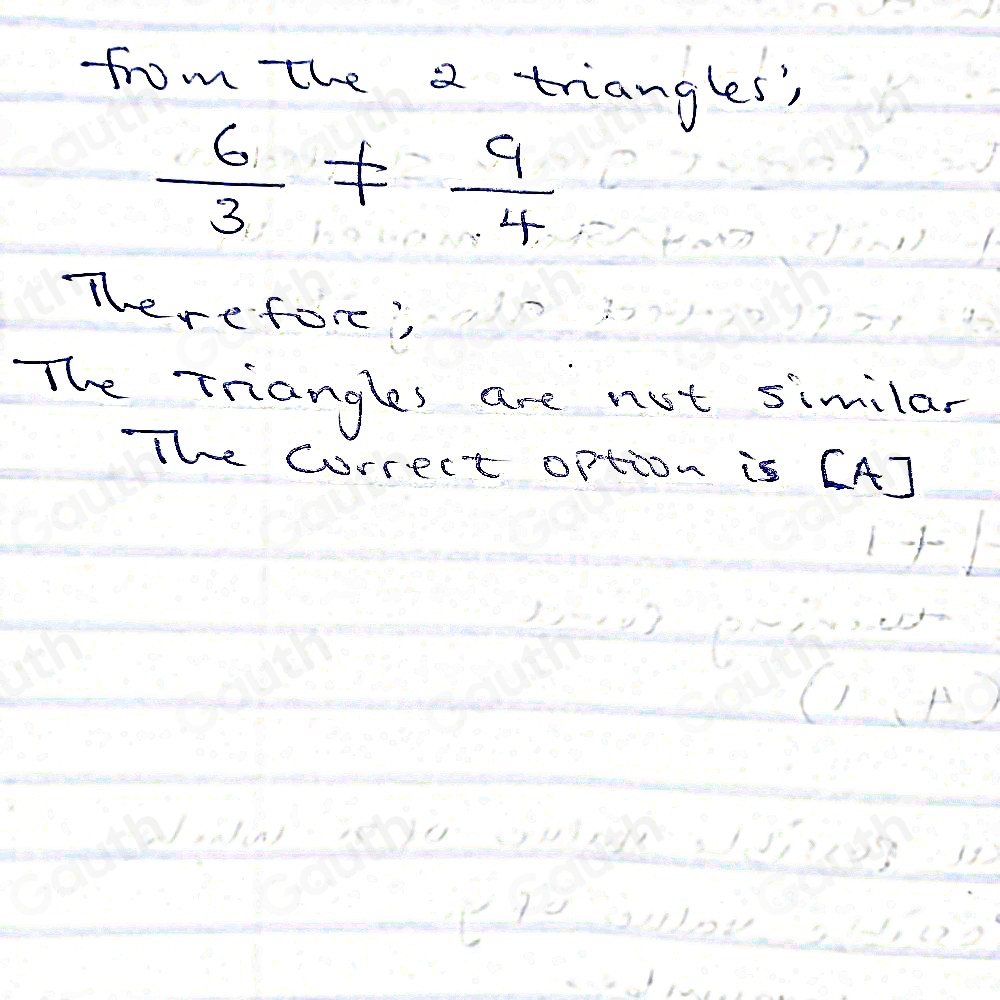 from The 2 triangles;
6/3 ≠ 9/4
Therefore;
The Triangles are not similar
The Correct option is [A]
Gauth